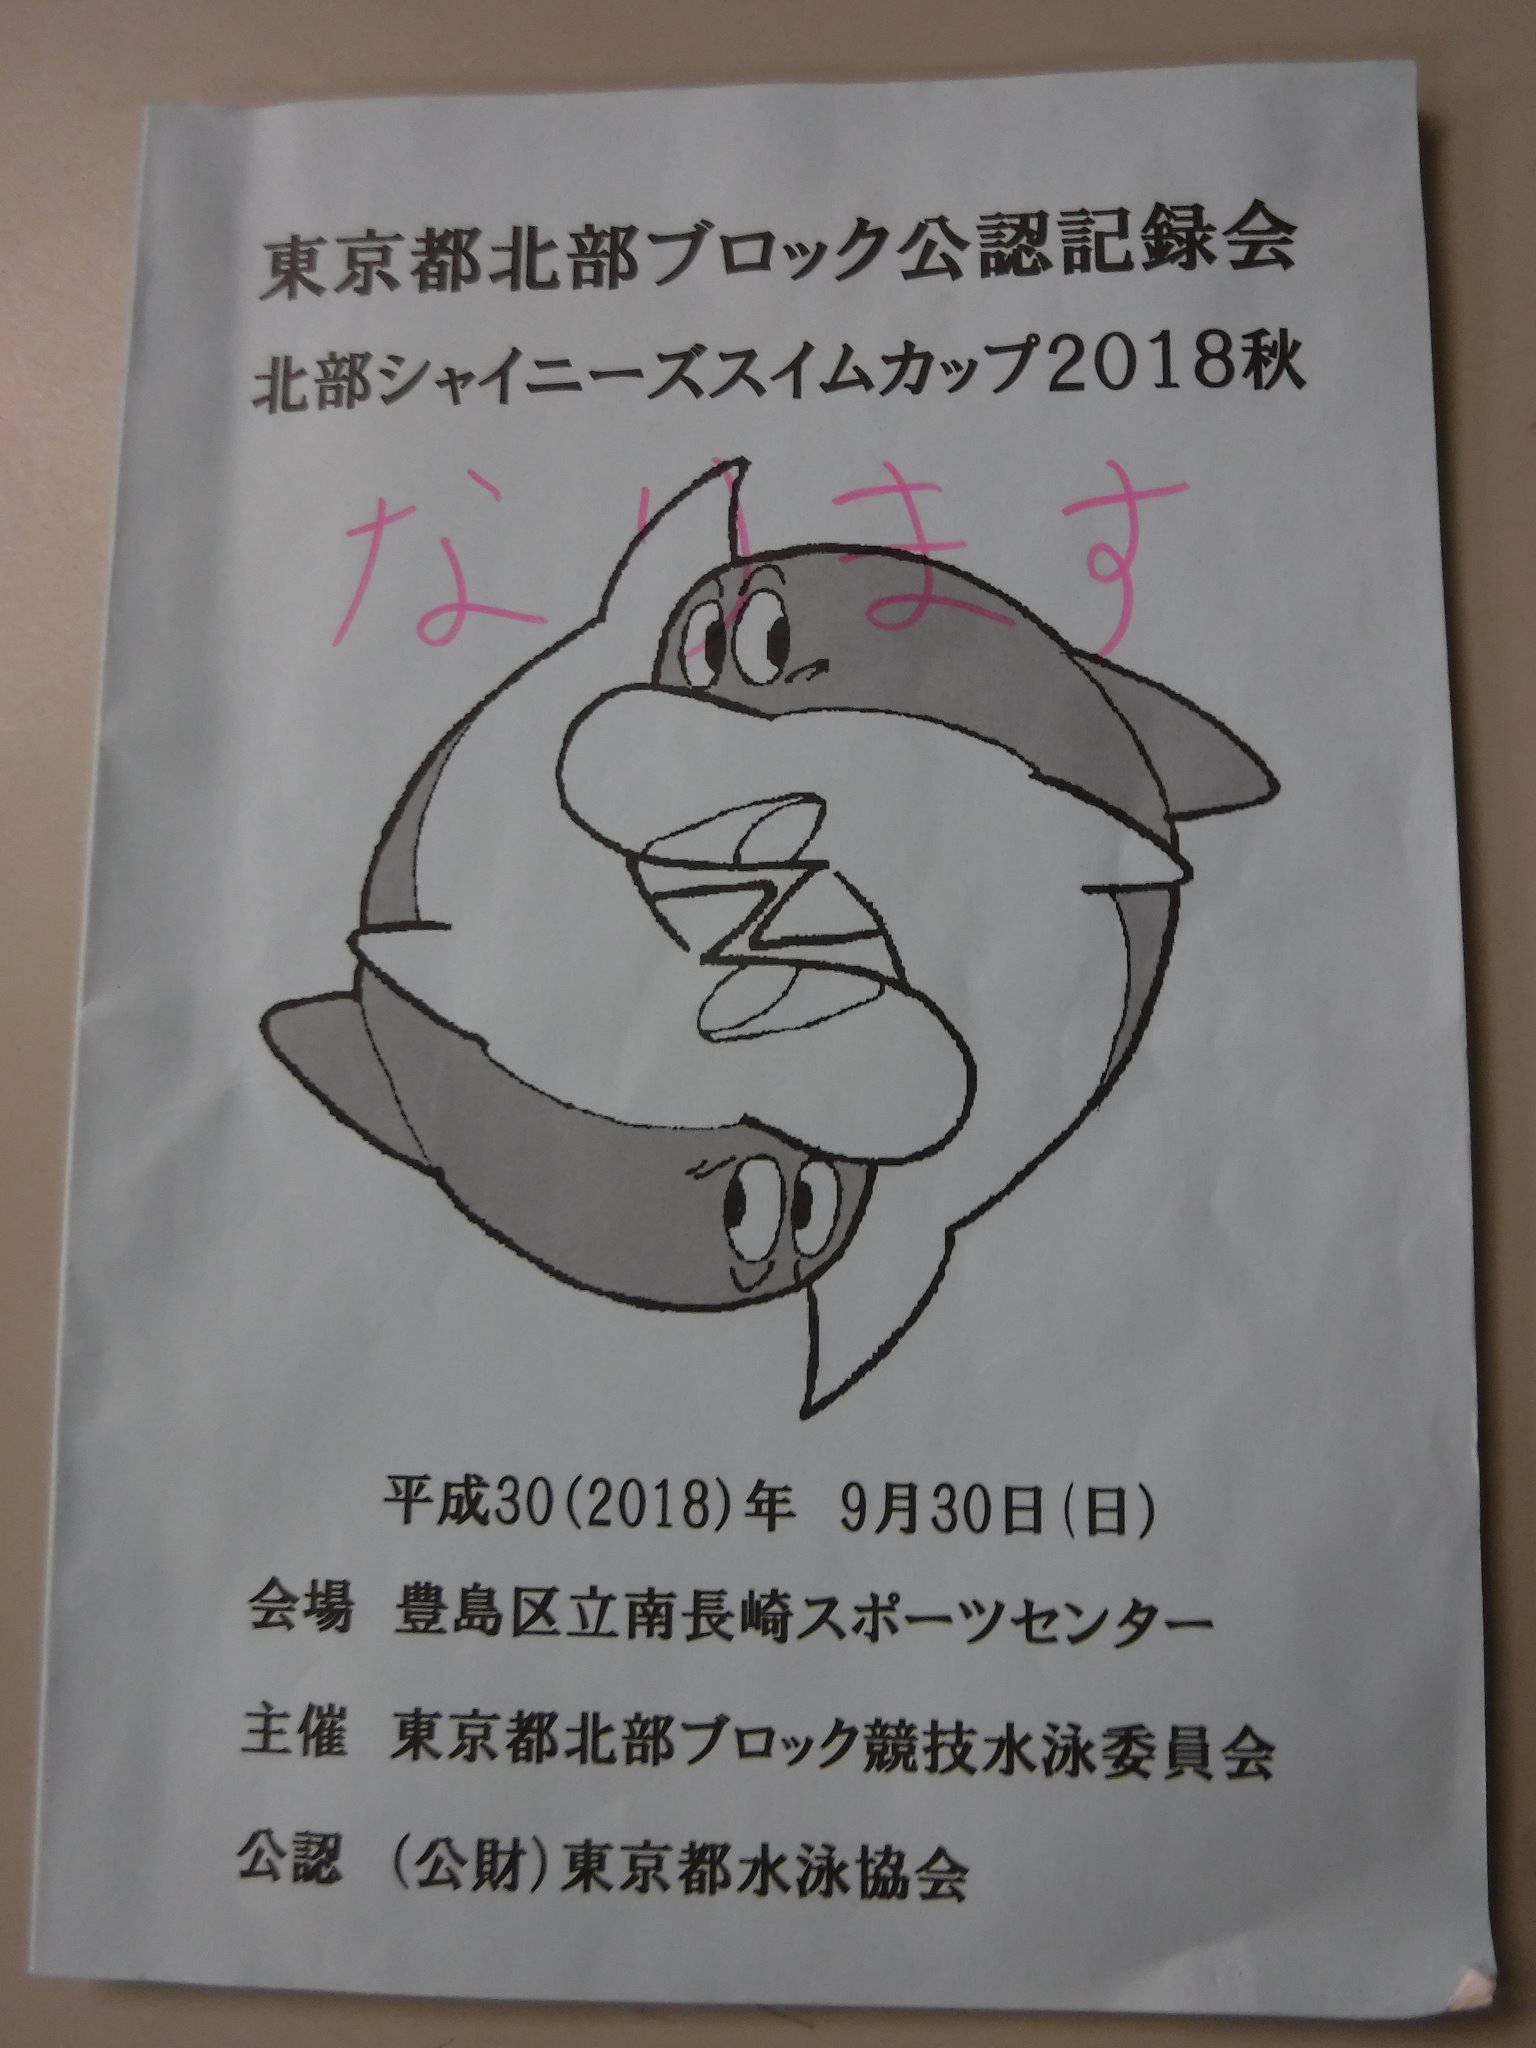 東京都北部ブロック公認記録会
北部シャイニーズスイムカップ2018秋
なります
平成30(2018)年 9月30日(日)
会場 豊島区立南長崎スポーツセンター
主催 東京都北部ブロック競技水泳委員会
公認 (公財)東京都水泳協会